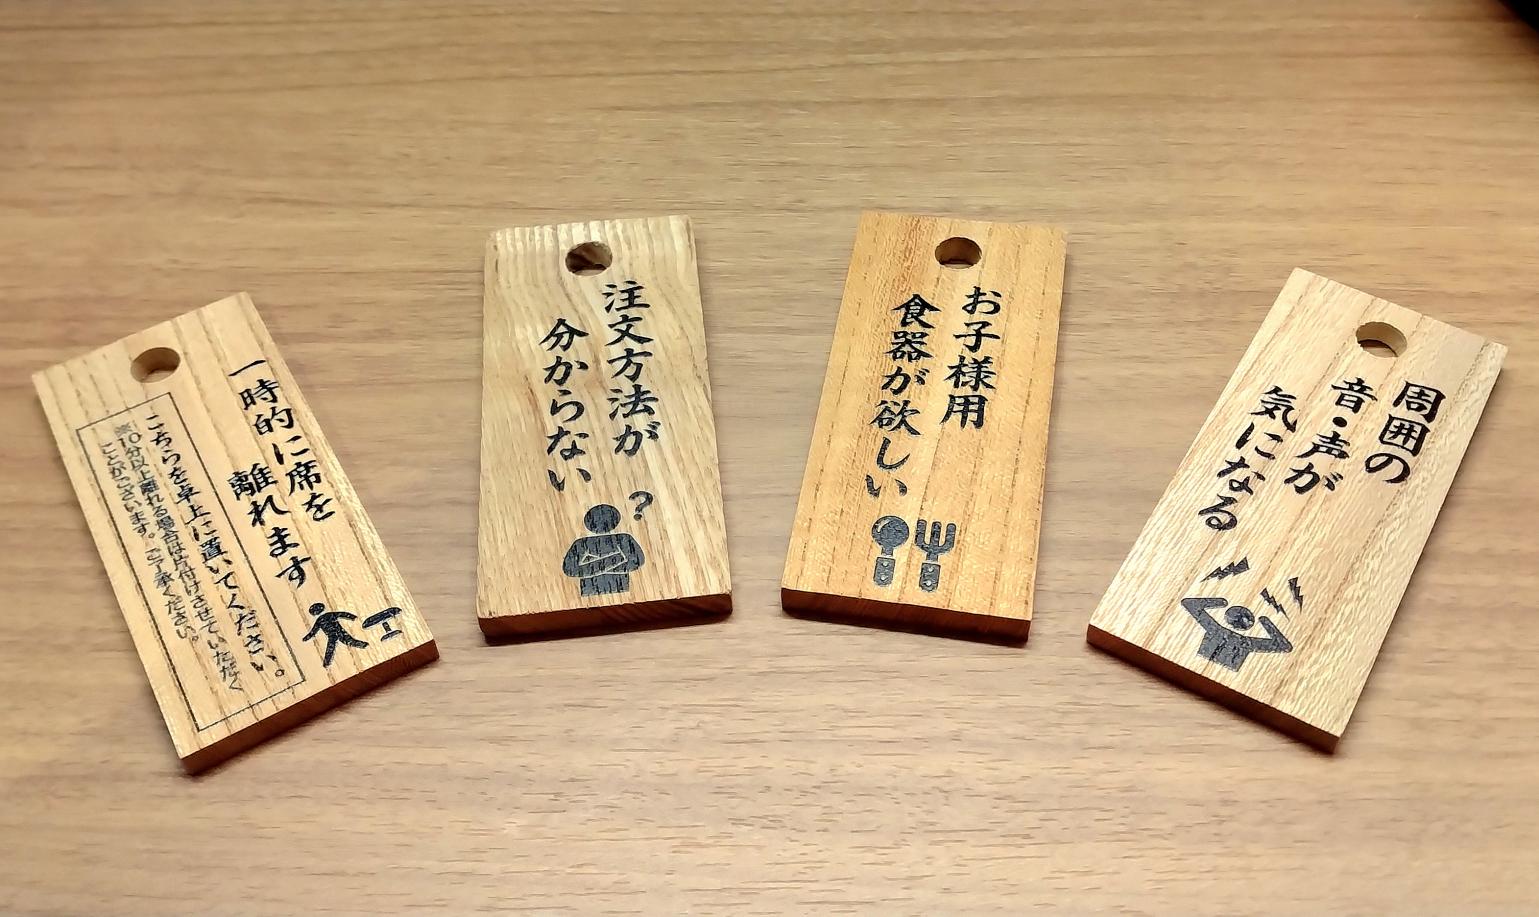 一時的に席を
離れます
こちらを卓上に置いてください。
※10分以上離れる場合は片付けさせていただく
ことがございます。ご了承ください。
注文方法が
分からない
?
お子様用
食器が欲しい
周囲の
音・声が
気になる